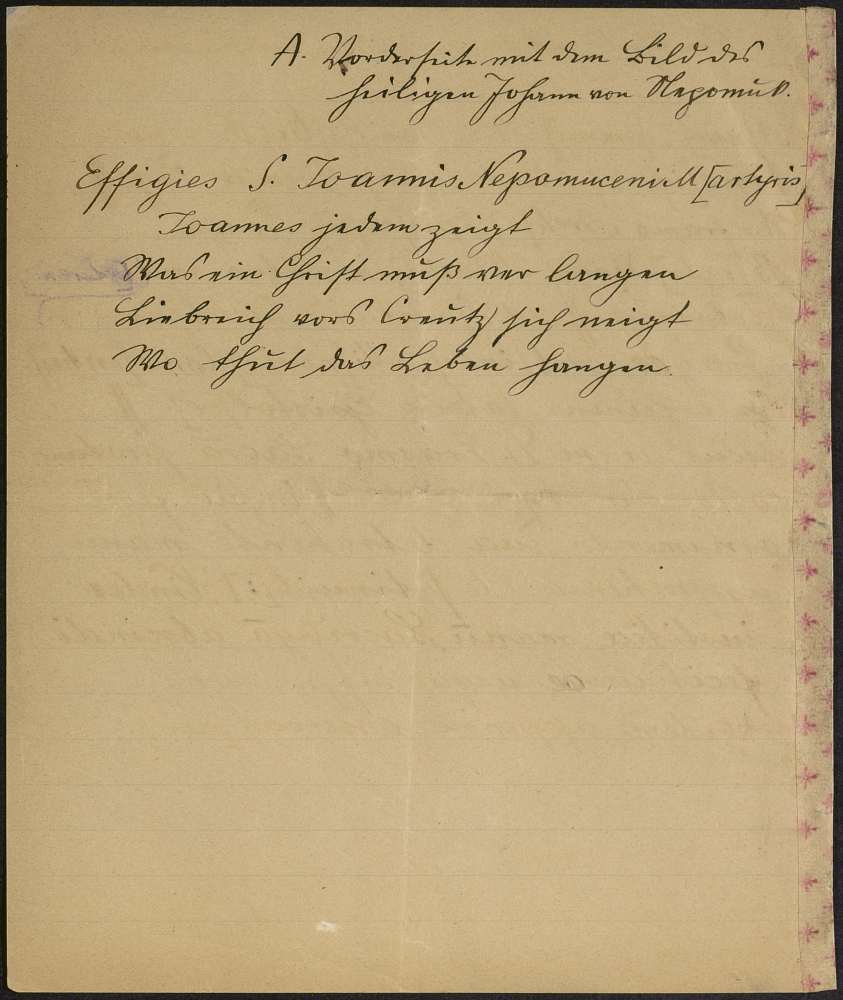 A. Vorderseite mit dem Bild des
heiligen Johann von Nepomuk.
Effigies S. Joannis Nepomuceni M[artyris]
Joannes jedem zeigt
Was ein Christ muß ver langen
Liebreich vors Creutz sich neigt
Wo thut das Leben hangen.